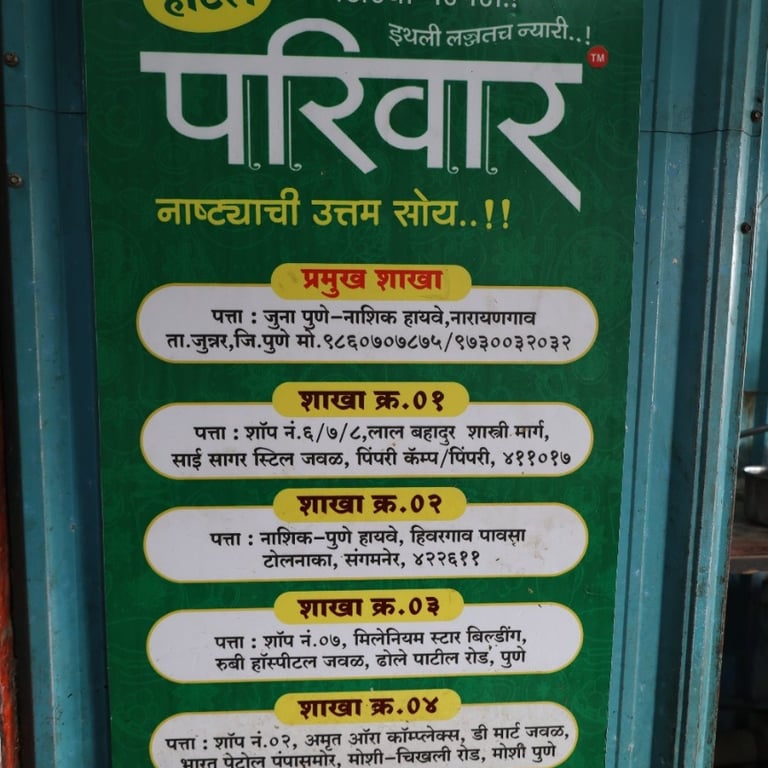 हॉटेल
इथली लज्जतच न्यारी..!
परिवार TM
नाष्ट्याची उत्तम सोय..!!
प्रमुख शाखा
पत्ता : जुना पुणे-नाशिक हायवे,नारायणगाव
ता.जुन्नर,जि.पुणे मो.९८६०७०७८७५/९७३००३२०३२
शाखा क्र.०१
पत्ता : शॉप नं.६/७/८,लाल बहादुर शास्त्री मार्ग,
साई सागर स्टिल जवळ, पिंपरी कॅम्प/पिंपरी, ४११०१७
शाखा क्र.०२
पत्ता : नाशिक-पुणे हायवे, हिवरगाव पावसा
टोलनाका, संगमनेर, ४२२६११
शाखा क्र.०३
पत्ता : शॉप नं.०७, मिलेनियम स्टार बिल्डींग,
रुबी हॉस्पीटल जवळ, ढोले पाटील रोड, पुणे
शाखा क्र.०४
पत्ता : शॉप नं.०२, अमृत ऑरा कॉम्प्लेक्स, डी मार्ट जवळ,
भारत पेटोल पंपासमोर, मोशी-चिखली रोड, मोशी पुणे